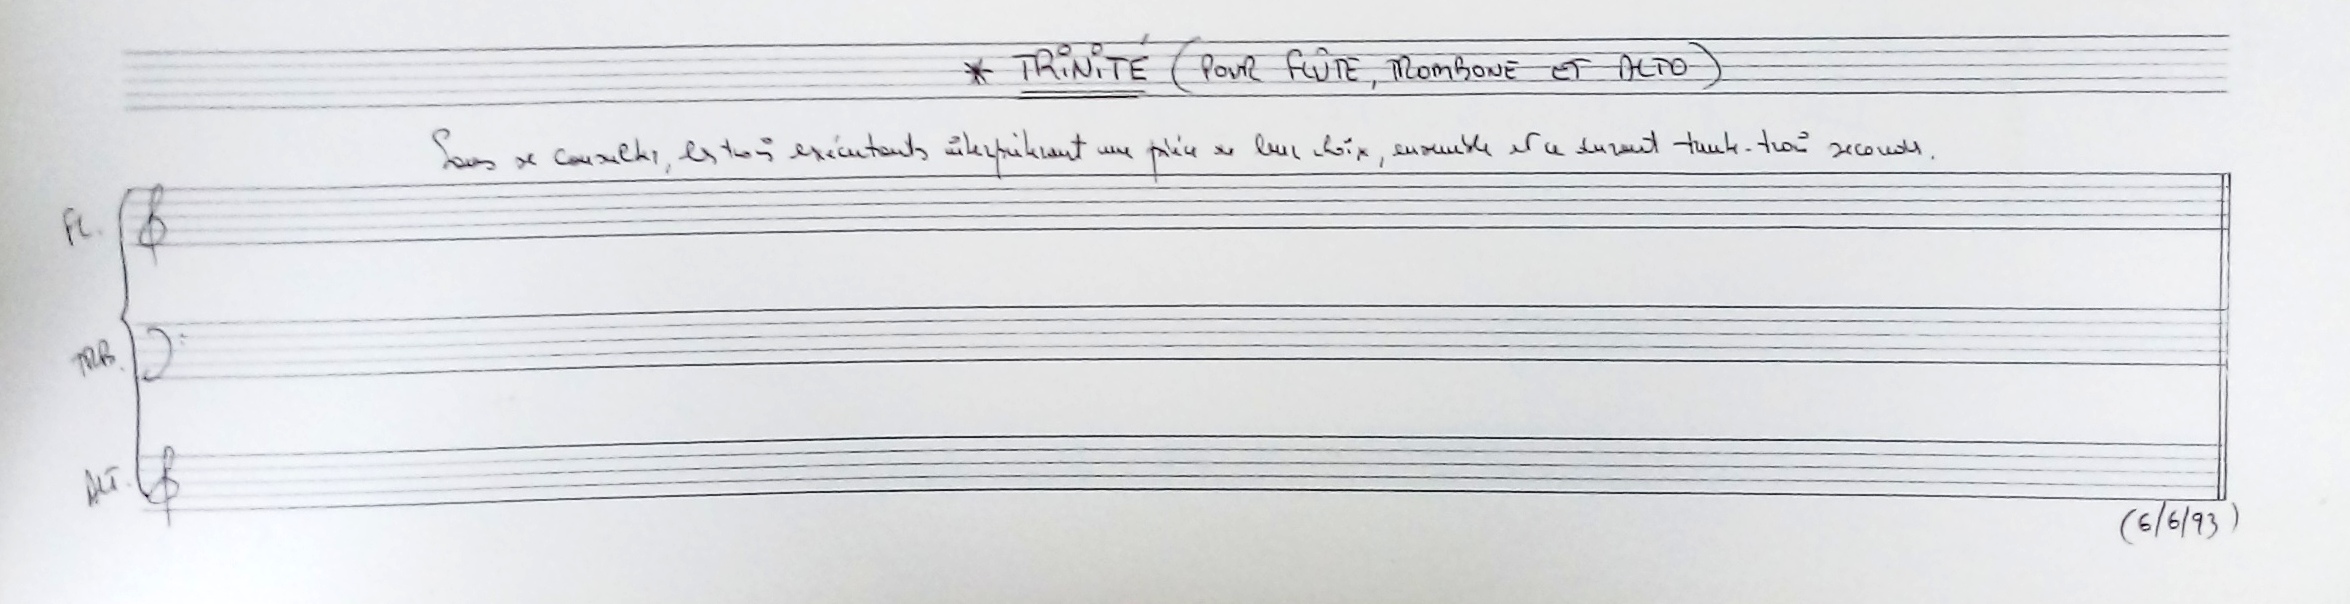 * TRINITÉ (POUR FLÛTE, TROMBONE ET ALTO)
Sans se consulter, les trois exécutants interprètent une pièce de leur choix, ensemble et ce durant trente-trois secondes.
FL.
TRB.
ALT.
(6/6/93)